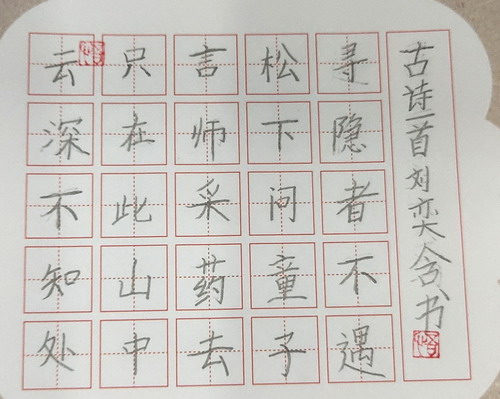 古诗一首刘奕含书
寻隐者不遇
松下问童子
言师采药去
只在此山中
云深不知处